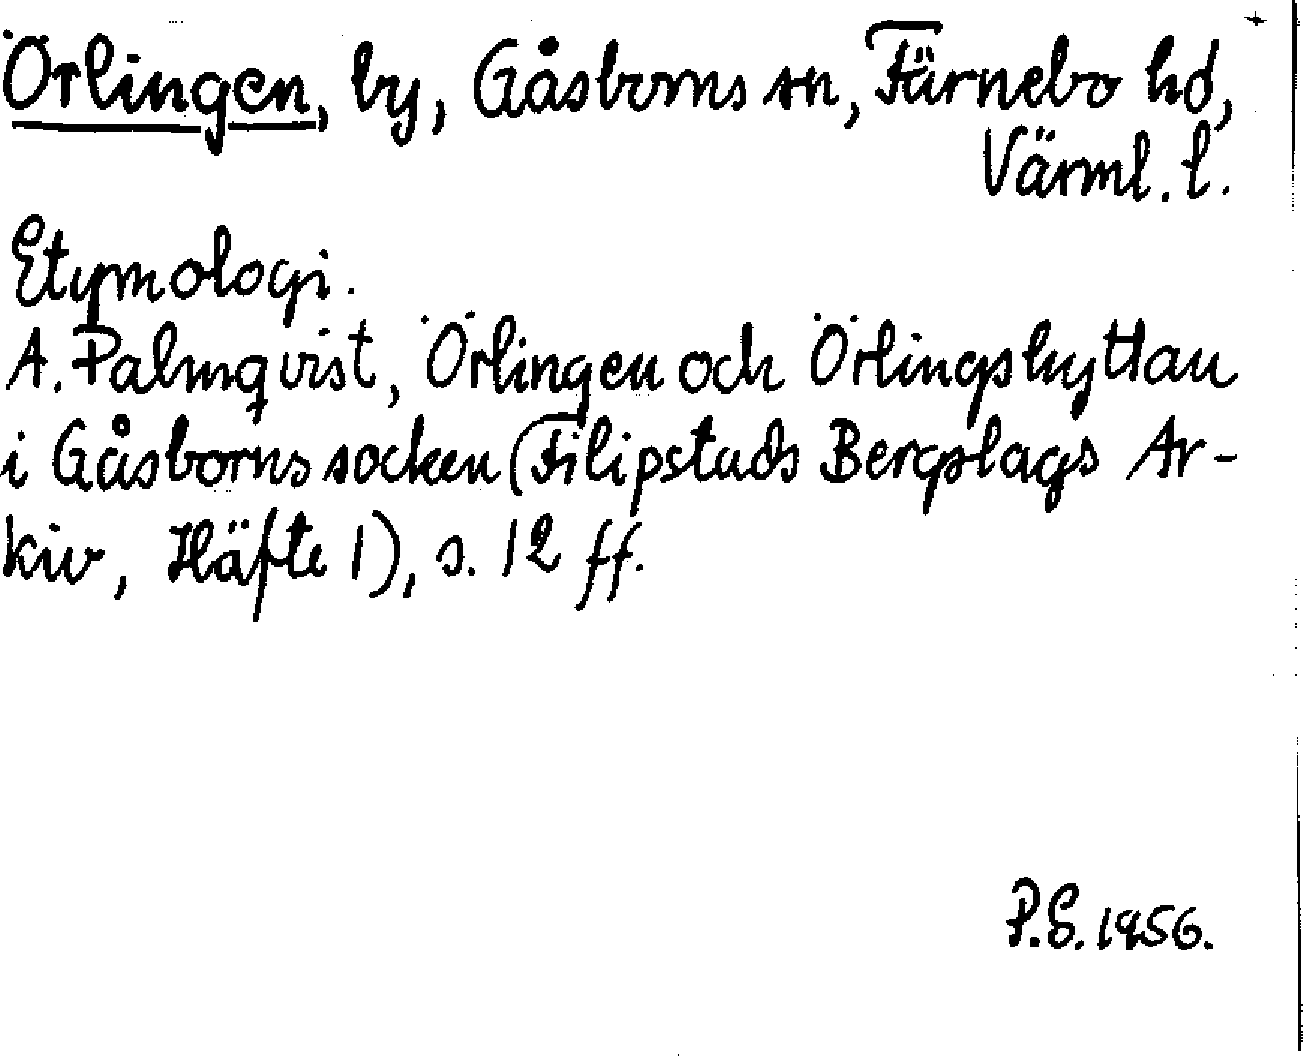 Örlingen, by, Gåsborns sn, Färnebo hd,
Värml. l.
Etymologi.
A. Palmqvist, Örlingen och Örlingshyttan
i Gåsborns socken (Filipstads Bergslags Ar-
kiv, Häfte 1), s. 12 ff.
P.S. 1956.